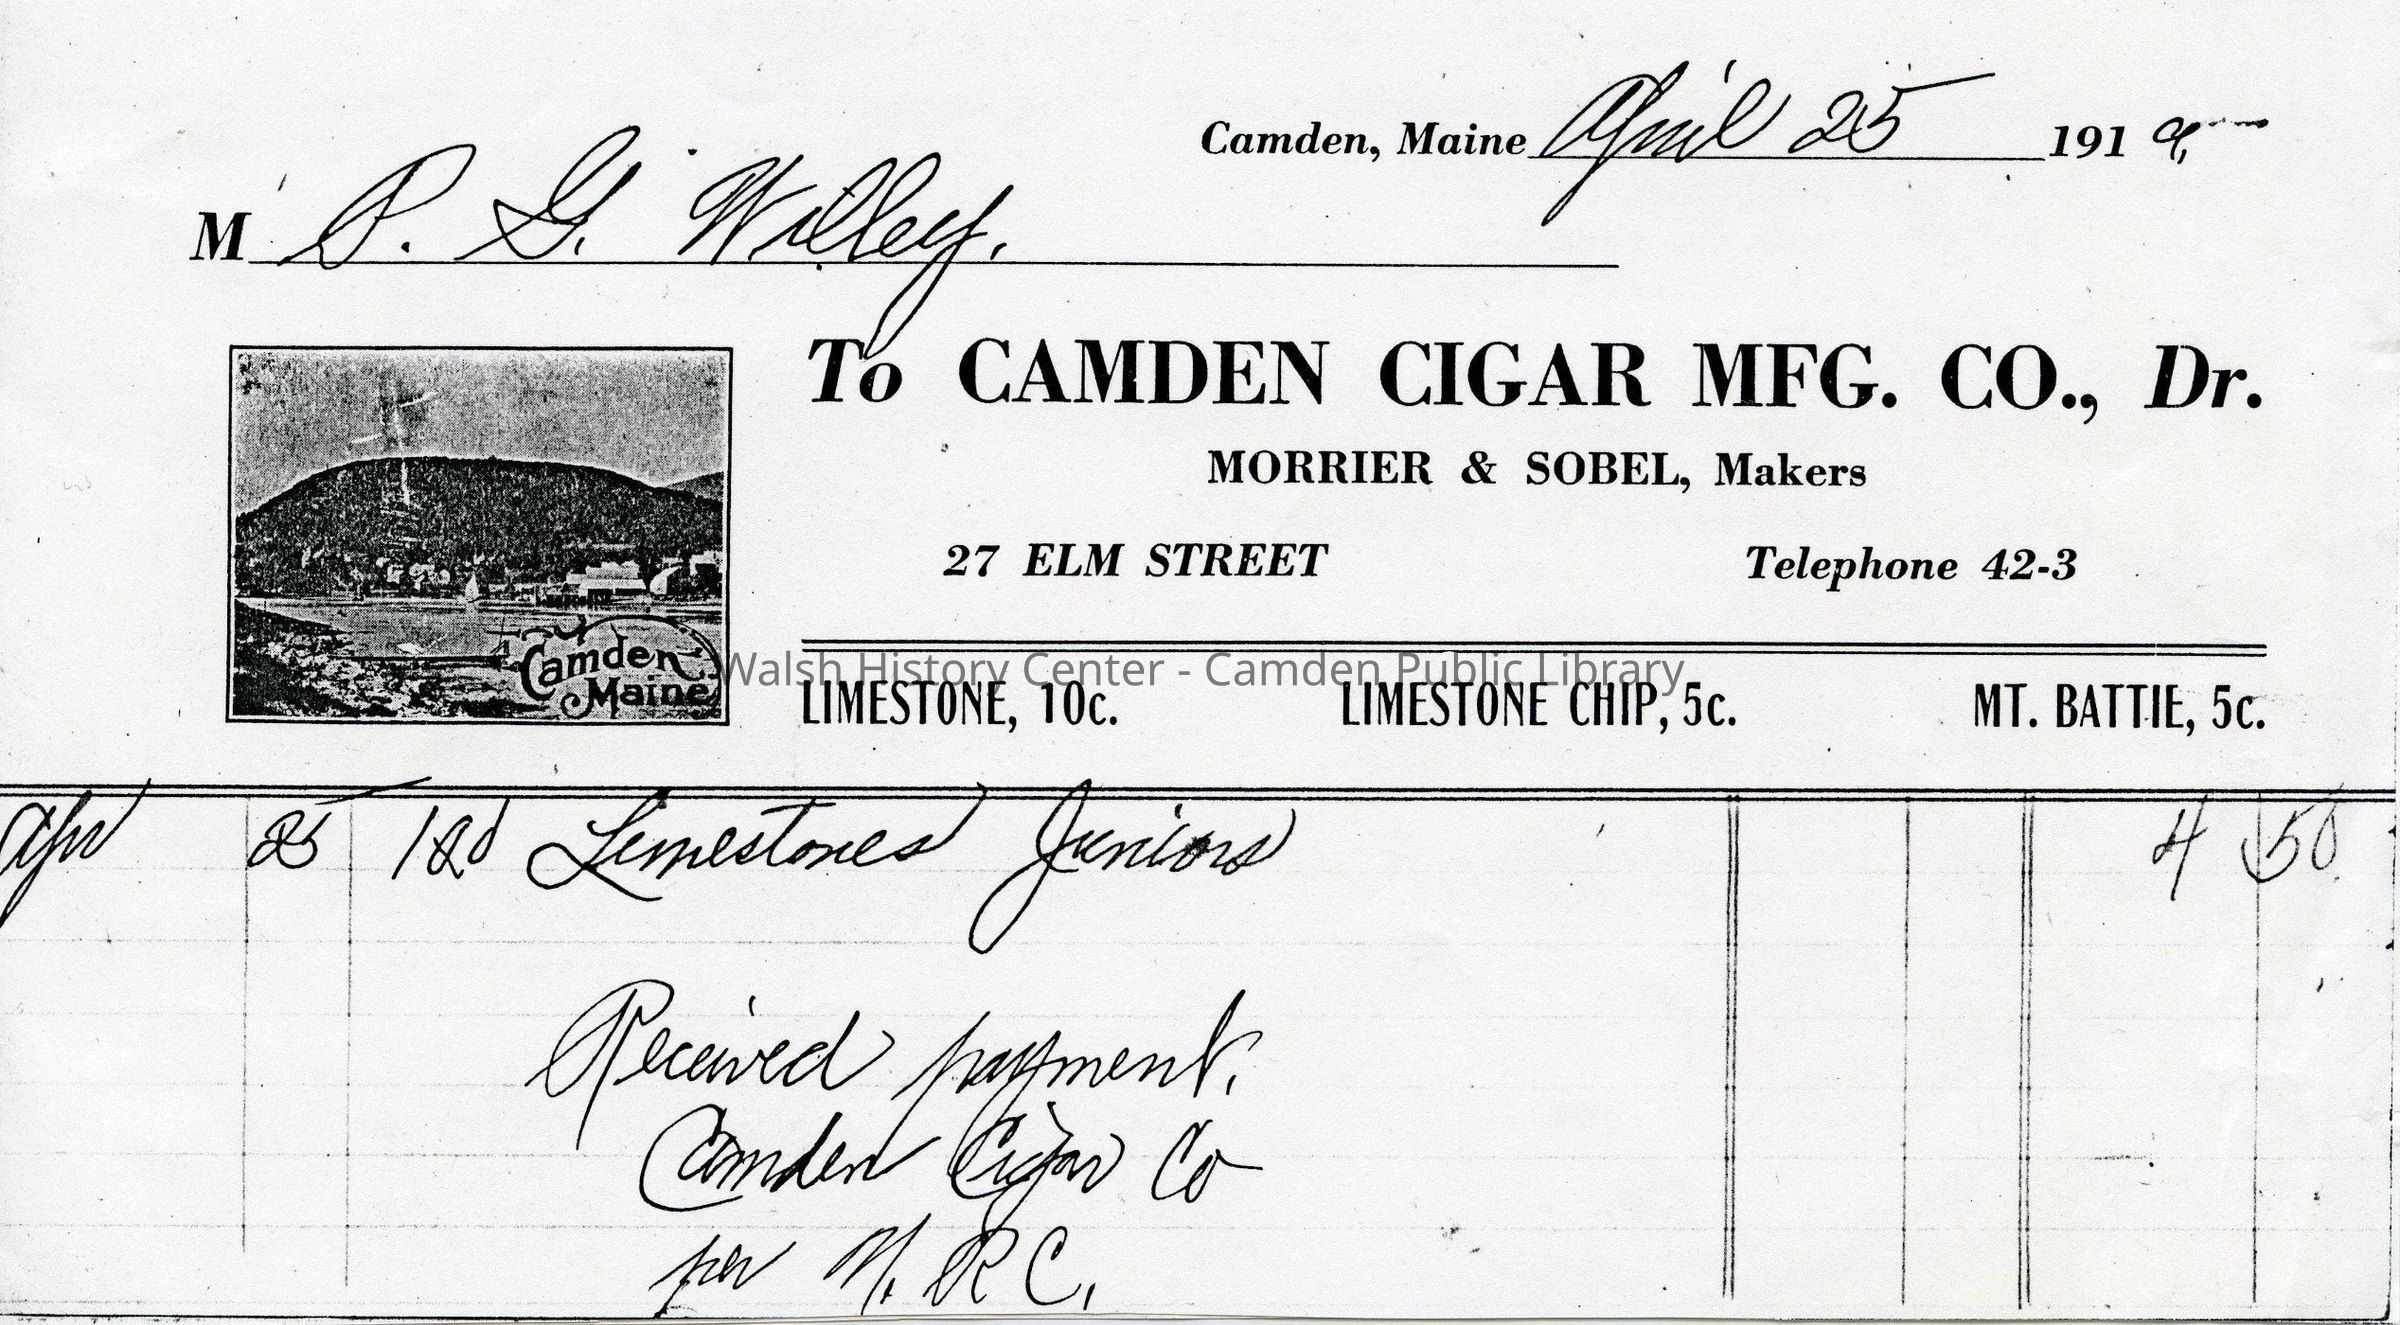 Camden, Maine April 25 1919
M P. G. Willey.
To CAMDEN CIGAR MFG. CO., Dr.
MORRIER & SOBEL, Makers
27 ELM STREET Telephone 42-3
Camden
Maine
Walsh History Center - Camden Public Library
LIMESTONE, 10c. LIMESTONE CHIP, 5c. MT. BATTIE, 5c.
Apr 25 Limestones Juniors 4 50
Received payment.
Camden Cigar Co
per R C.